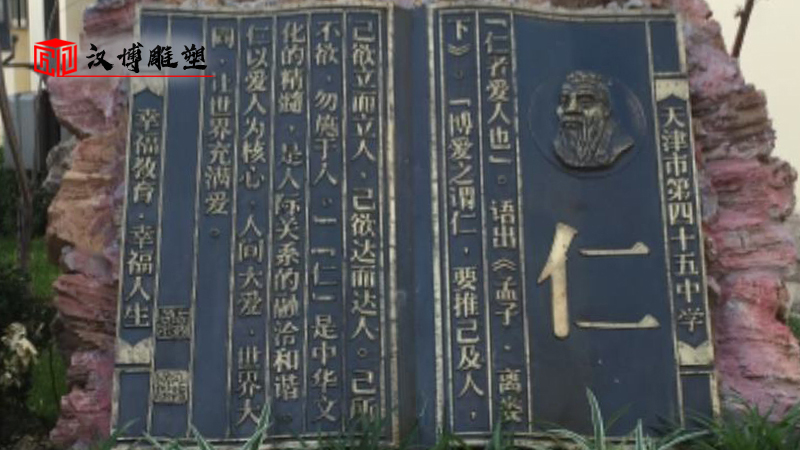 汉博雕塑
天津市第四十五中学
仁
「仁者爱人也」。语出《孟子·离娄
下》。「博爱之谓仁，要推己及人，
己欲立而立人，己欲达而达人。己所
不欲，勿施于人。」「仁」是中华文
化的精髓，是人际关系的融洽和谐。
仁以爱人为核心，人间大爱，世界大
同，让世界充满爱。
幸福教育·幸福人生